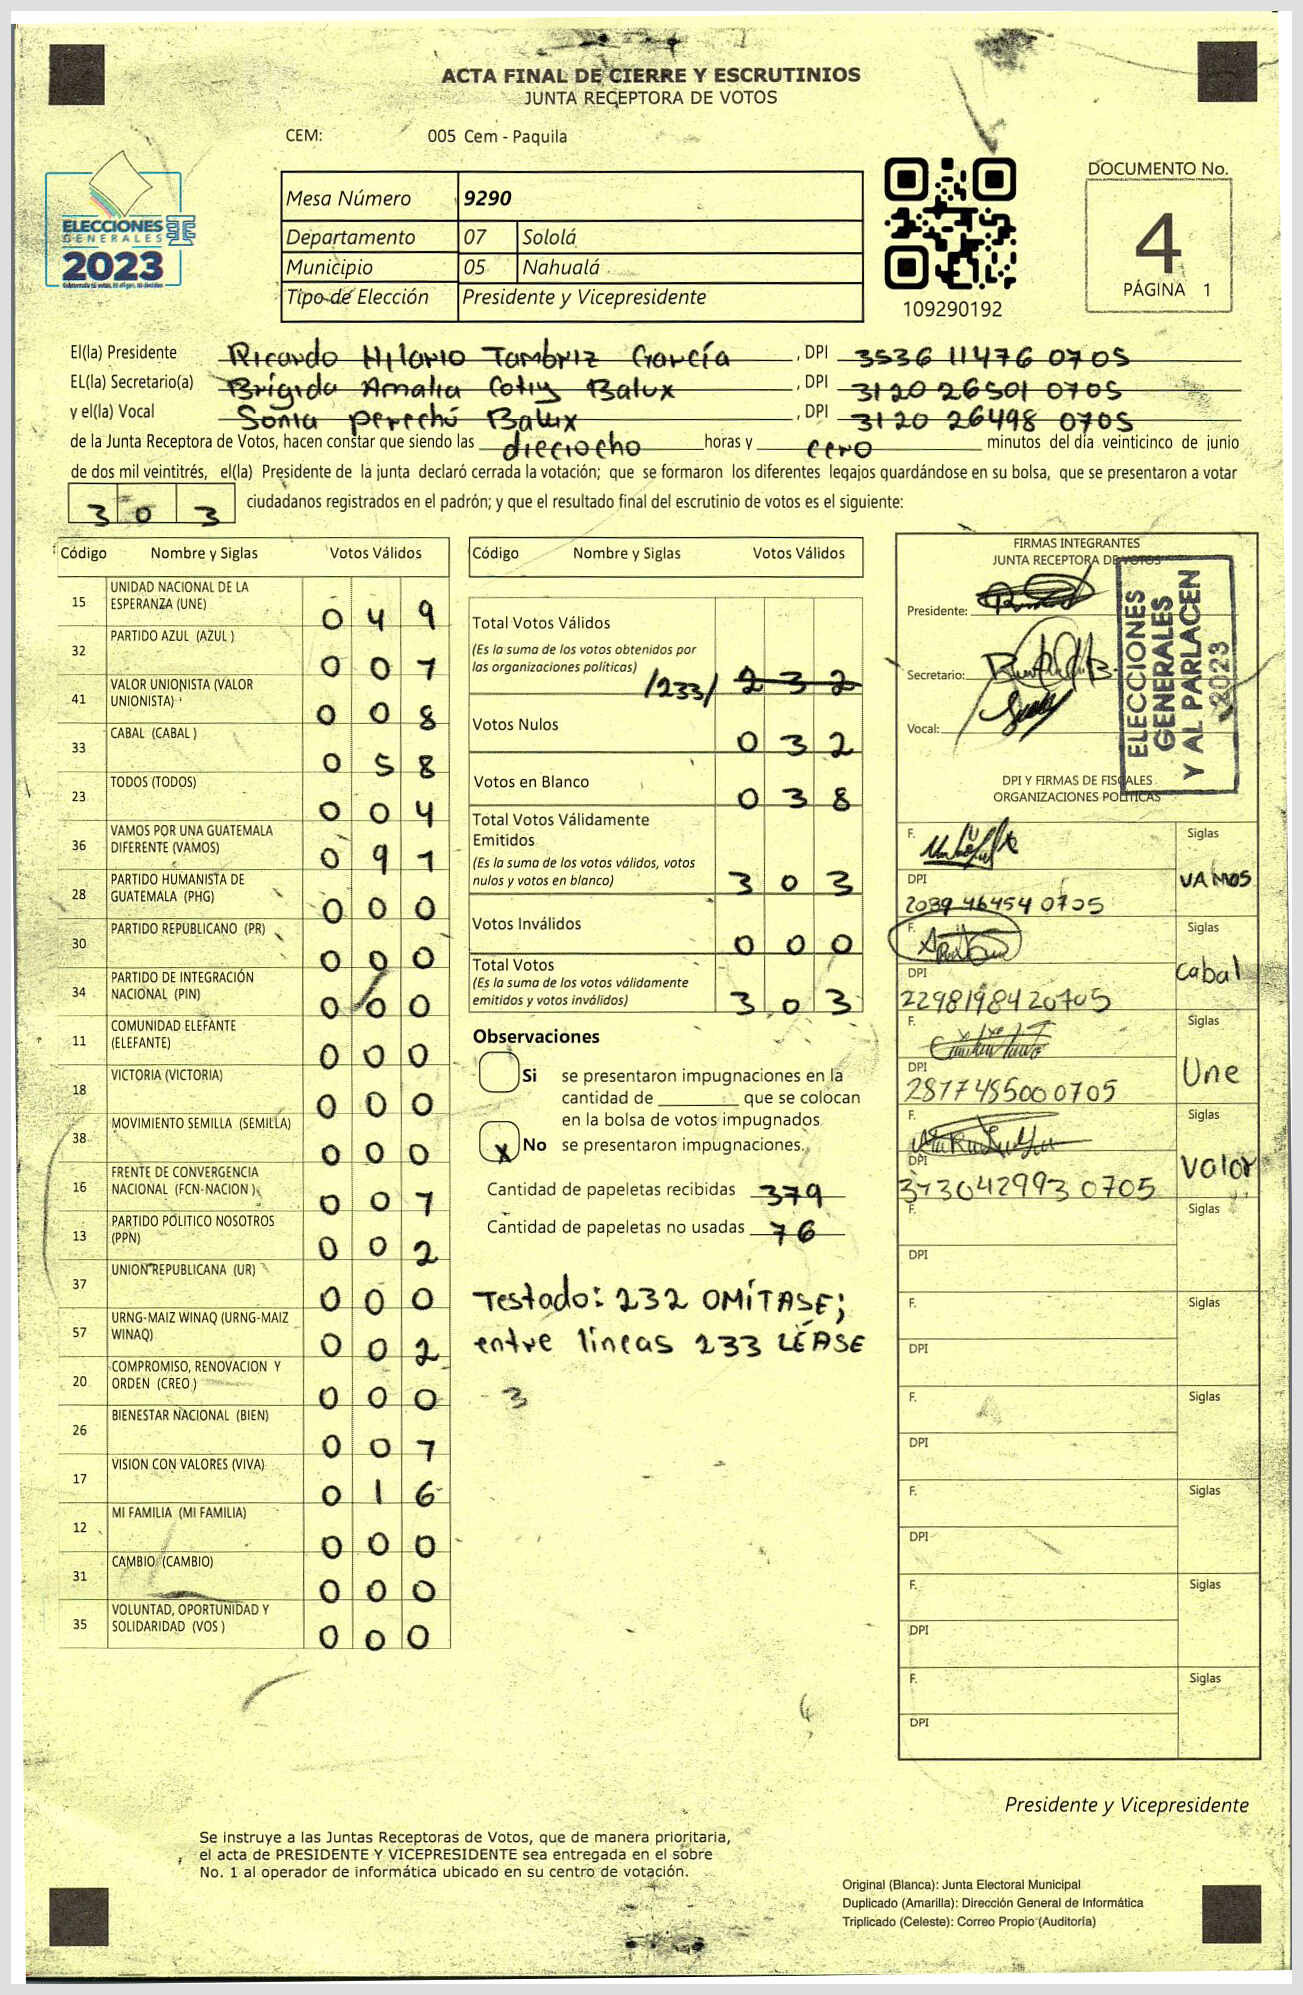 ACTA FINAL DE CIERRE Y ESCRUTINIOS
JUNTA RECEPTORA DE VOTOS
CEM: 005 Cem - Paquila
ELECCIONES
GENERALES
2023
Mesa Número 9290
Departamento 07 Sololá
Municipio 05 Nahualá
Tipo de Elección Presidente y Vicepresidente
109290192
DOCUMENTO No.
4
PÁGINA 1
El(la) Presidente Ricardo Hilario Tambriz García, DPI 3536 11476 0705
EL(la) Secretario(a) Brígida Amalia Cotiy Balux, DPI 3120 26501 0705
y el(la) Vocal Sonia Perechú Balux, DPI 3120 26498 0705
de la Junta Receptora de Votos, hacen constar que siendo las dieciocho horas y cero minutos del día veinticinco de junio
de dos mil veintitrés, el(la) Presidente de la junta declaró cerrada la votación; que se formaron los diferentes legajos guardándose en su bolsa, que se presentaron a votar
3 0 3 ciudadanos registrados en el padrón; y que el resultado final del escrutinio de votos es el siguiente:
Código Nombre y Siglas Votos Válidos
15 UNIDAD NACIONAL DE LA ESPERANZA (UNE) 0 4 9
32 PARTIDO AZUL (AZUL ) 0 0 7
41 VALOR UNIONISTA (VALOR UNIONISTA) 0 0 8
33 CABAL (CABAL ) 0 5 8
23 TODOS (TODOS) 0 0 4
36 VAMOS POR UNA GUATEMALA DIFERENTE (VAMOS) 0 9 1
28 PARTIDO HUMANISTA DE GUATEMALA (PHG) 0 0 0
30 PARTIDO REPUBLICANO (PR) 0 0 0
34 PARTIDO DE INTEGRACIÓN NACIONAL (PIN) 0 0 0
11 COMUNIDAD ELEFANTE (ELEFANTE) 0 0 0
18 VICTORIA (VICTORIA) 0 0 0
38 MOVIMIENTO SEMILLA (SEMILLA) 0 0 0
16 FRENTE DE CONVERGENCIA NACIONAL (FCN-NACION ) 0 0 7
13 PARTIDO POLITICO NOSOTROS (PPN) 0 0 2
37 UNION REPUBLICANA (UR) 0 0 0
57 URNG-MAIZ WINAQ (URNG-MAIZ WINAQ) 0 0 2
20 COMPROMISO, RENOVACION Y ORDEN (CREO ) 0 0 0
26 BIENESTAR NACIONAL (BIEN) 0 0 7
17 VISION CON VALORES (VIVA) 0 1 6
12 MI FAMILIA (MI FAMILIA) 0 0 0
31 CAMBIO (CAMBIO) 0 0 0
35 VOLUNTAD, OPORTUNIDAD Y SOLIDARIDAD (VOS ) 0 0 0
Código Nombre y Siglas Votos Válidos
Total Votos Válidos
(Es la suma de los votos obtenidos por
las organizaciones políticas)
/233/ 2 3 2
Votos Nulos 0 3 2
Votos en Blanco 0 3 8
Total Votos Válidamente
Emitidos
(Es la suma de los votos válidos, votos
nulos y votos en blanco) 3 0 3
Votos Inválidos 0 0 0
Total Votos
(Es la suma de los votos válidamente
emitidos y votos inválidos) 3 0 3
Observaciones
Si se presentaron impugnaciones en la
cantidad de ________ que se colocan
en la bolsa de votos impugnados
X No se presentaron impugnaciones.
Cantidad de papeletas recibidas 379
Cantidad de papeletas no usadas 76
Testado: 232 OMÍTASE;
entre líneas 233 LÉASE
3
FIRMAS INTEGRANTES
JUNTA RECEPTORA DE VOTOS
Presidente:
Secretario:
Vocal:
ELECCIONES
GENERALES
Y AL PARLACEN
2023
DPI Y FIRMAS DE FISCALES
ORGANIZACIONES POLÍTICAS
F. Siglas
DPI VAMOS
2039 46454 0705
F. Siglas
DPI Cabal
2298198420705
F. Siglas
DPI Une
2877485000705
F. Siglas
DPI Valor
3430429930705
F. Siglas
DPI
F. Siglas
DPI
F. Siglas
DPI
F. Siglas
DPI
F. Siglas
DPI
F. Siglas
DPI
Presidente y Vicepresidente
Se instruye a las Juntas Receptoras de Votos, que de manera prioritaria,
el acta de PRESIDENTE Y VICEPRESIDENTE sea entregada en el sobre
No. 1 al operador de informática ubicado en su centro de votación.
Original (Blanca): Junta Electoral Municipal
Duplicado (Amarilla): Dirección General de Informática
Triplicado (Celeste): Correo Propio (Auditoría)